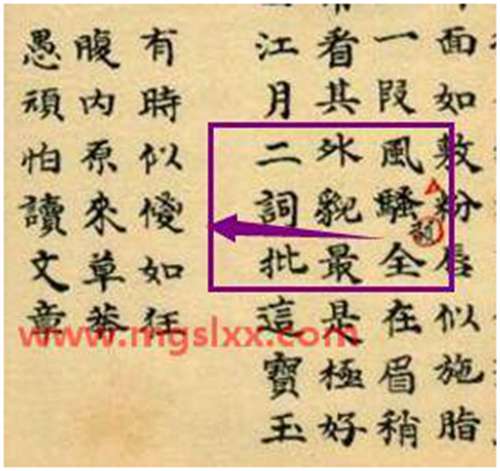 面如敷粉唇似施脂
一段風騷全在眉稍
看其外貌最是極好
江月二詞批這寶玉
有時似傻如狂
腹内原來草莽
愚頑怕讀文章
www.mgslxx.com